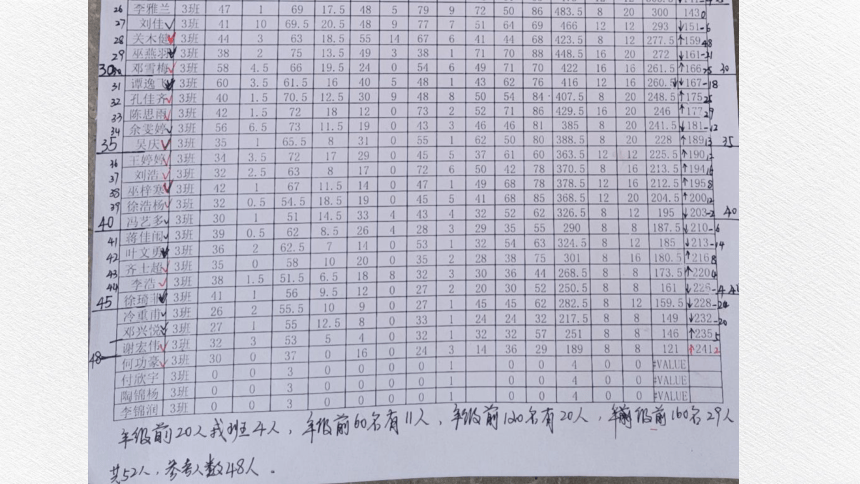 26 李雅兰 3班 47 1 69 17.5 48 5 79 9 72 50 86 483.5 8 20 300 143 0
27 刘伟 3班 41 10 69.5 20.5 48 9 77 7 51 64 69 466 12 12 293 ↓151 -6
28 关木健 3班 44 3 63 18.5 55 14 67 6 41 44 68 423.5 8 12 277.5 ↑159
29 巫燕羽 3班 38 2 75 13.5 49 3 38 1 71 70 88 448.5 16 20 272 ↓161
30 邓雪梅 3班 58 4.5 66 19.5 24 0 54 6 49 71 70 422 16 16 261.5 ↑166 30
31 谭逸飞 3班 60 3.5 61.5 16 40 5 48 1 43 62 76 416 12 16 260.5 ↓167 -18
32 孔佳齐 3班 40 1.5 70.5 12.5 30 9 48 8 50 54 84 407.5 8 20 248.5 ↑175
33 陈思雨 3班 42 1.5 72 18 12 0 73 2 52 71 86 429.5 16 20 246 ↑177
34 余雯婷 3班 56 6.5 73 11.5 19 0 43 3 46 46 81 385 8 20 241.5 ↓181 -12
35 吴庆 3班 35 1 65.5 8 31 0 55 1 62 50 80 388.5 8 20 228 ↑189 35
36 王婷婷 3班 34 3.5 72 17 29 0 45 5 37 61 60 363.5 12 12 225.5 ↑190
37 刘浩 3班 32 2.5 63 8 17 0 72 6 50 42 78 370.5 8 16 213.5 ↑194
38 巫梓寒 3班 42 1 67 11.5 14 0 47 1 49 68 78 378.5 12 16 212.5 ↑195
39 徐浩杨 3班 32 0.5 54.5 18.5 19 0 45 5 41 68 85 368.5 12 20 204.5 ↑200
40 冯艺多 3班 30 1 51 14.5 33 4 43 4 32 52 62 326.5 8 12 195 ↓203 40
41 蒋佳闹 3班 39 0.5 62 8.5 26 4 28 3 29 35 55 290 8 8 187.5 ↓210 -6
42 叶文勇 3班 36 2 62.5 7 14 0 53 1 32 54 63 324.5 8 12 185 ↓213 -14
43 齐士超 3班 35 0 58 10 20 0 35 2 28 38 75 301 8 16 180.5 ↑216
44 李浩 3班 38 1.5 51.5 6.5 18 8 32 3 30 36 44 268.5 8 8 173.5 ↑220
45 徐琦 3班 41 1 56 9.5 12 0 27 2 20 30 52 250.5 8 8 161 ↓226
冷重甫 3班 26 2 55.5 10 9 0 27 1 45 45 62 282.5 8 12 159.5 ↓228
邓兴悦 3班 27 1 55 12.5 8 0 33 1 24 24 32 217.5 8 8 149 ↓232 -20
48 谢宏伟 3班 32 3 53 5 4 0 32 1 32 32 57 251 8 8 146 ↑235 5
何功豪 3班 30 0 37 0 16 0 24 3 14 36 29 189 8 8 121 ↑241 2
付欣宇 3班 0 0 3 0 0 0 0 1 0 0 4 0 0 #VALUE
陶锦杨 3班 0 0 3 0 0 0 0 1 0 0 4 0 0 #VALUE
李锦润 3班 0 0 3 0 0 0 0 1 0 0 4 0 0 #VALUE
年级前20人我班4人，年级前60名有11人，年级前100名有20人，年级前160名29人
共52人，参考人数48人。